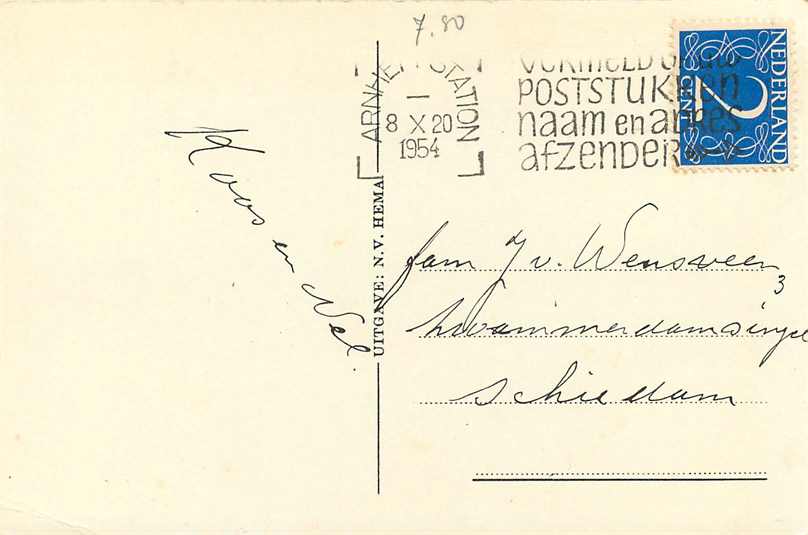 7.80
ARNHEM STATION
8 X 20
1954
VERMELD OP UW
POSTSTUKKEN
naam en adres
afZENDER
NEDERLAND
2 CENT
Koos en Nel.
UITGAVE: N.V. HEMA
fam J v. Wensveen
3
schiedam